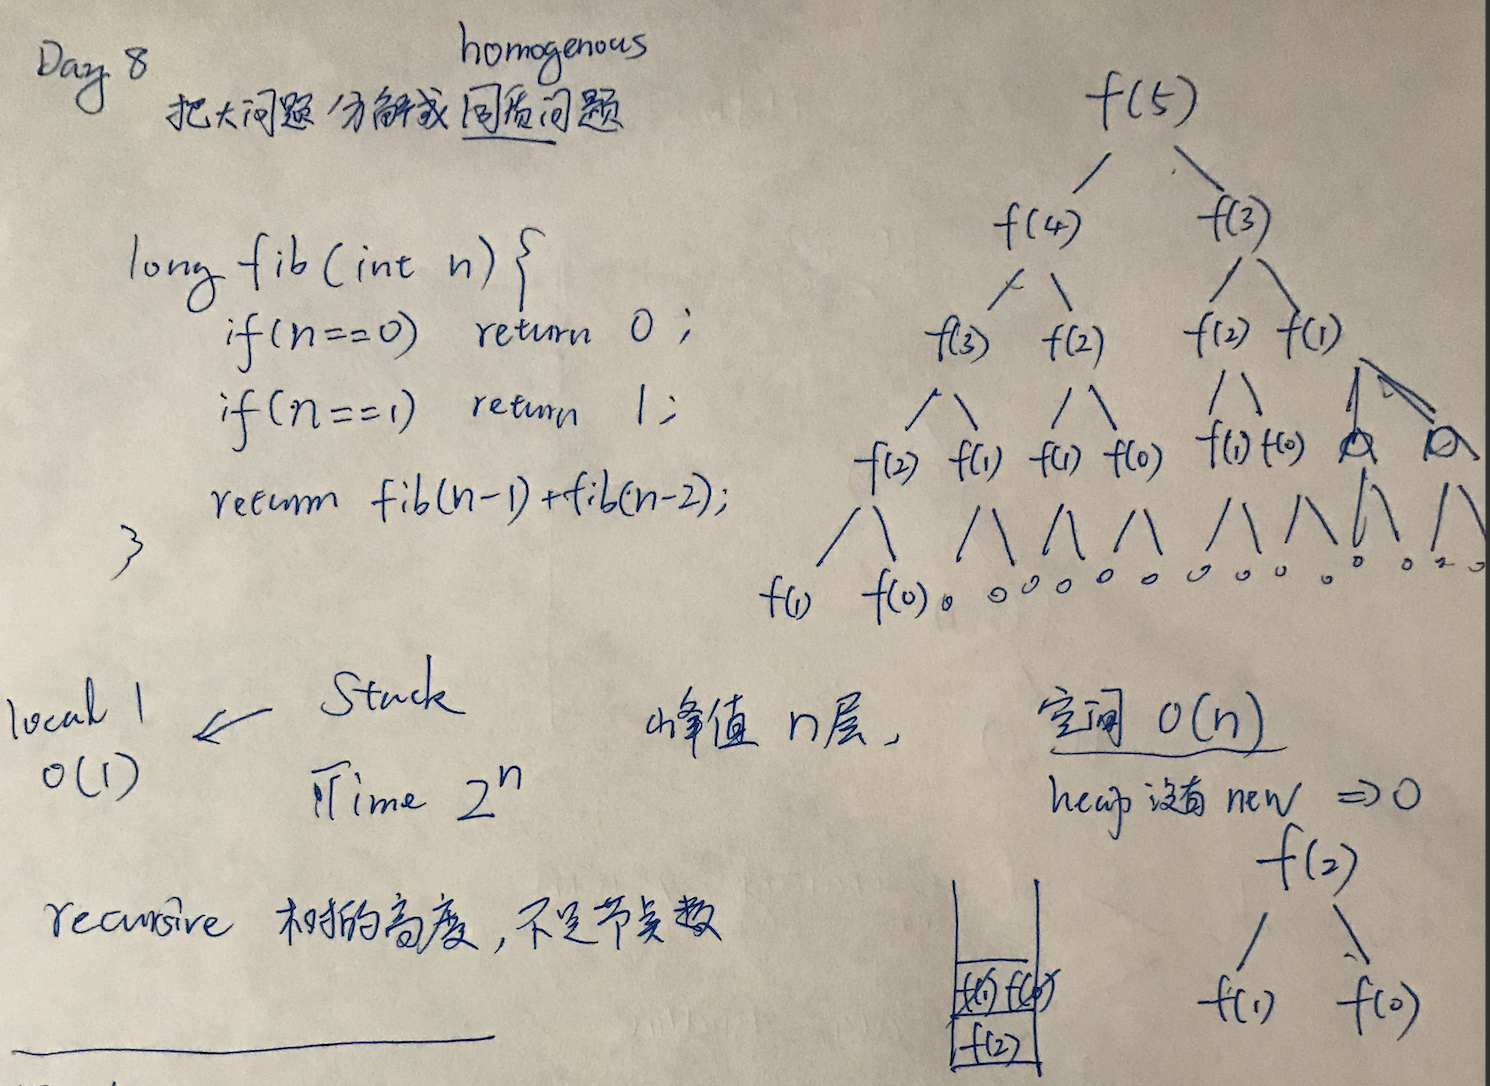 Day 8
homogenous
把大问题分解成同质问题
long fib(int n){
if(n==0) return 0;
if(n==1) return 1;
return fib(n-1)+fib(n-2);
}
f(5)
f(4) f(3)
f(3) f(2) f(2) f(1)
f(2) f(1) f(1) f(0) f(1) f(0)
f(1) f(0)
local 1
O(1)
Stack
Time 2^n
峰值 n层,
空间 O(n)
heap 没有 new => 0
recursive 树的高度, 不是节点数
f(2)
f(1) f(0)
f(1) f(0)
f(2)